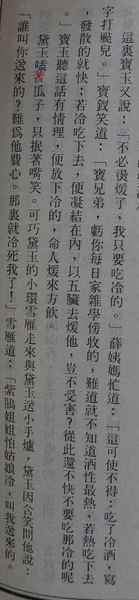 這裏寶玉又說：「不必燙煖了，我只要吃冷的。」薛姨媽忙道：「這可使不得：吃了冷酒，寫
字打颭兒。」寶釵笑道：「寶兄弟，虧你每日家雜學傍收的，難道就不知道酒性最熱，若熱吃下去
，發散的就快：若冷吃下去，便凝結在內，以五臟去煖他，豈不受害？從此還不快不要吃那冷的呢
。」寶玉聽這話有情理，便放下冷的，命人煖來方飲。
黛玉嗑著瓜子，只抿著嘴笑。可巧黛玉的小環雪雁走來與黛玉送小手爐，黛玉因含笑問他說：
「誰叫你送來的？難爲他費心。那裏就冷死我了！」雪雁道：「紫鵑姐姐怕姑娘冷，叫我送來的。